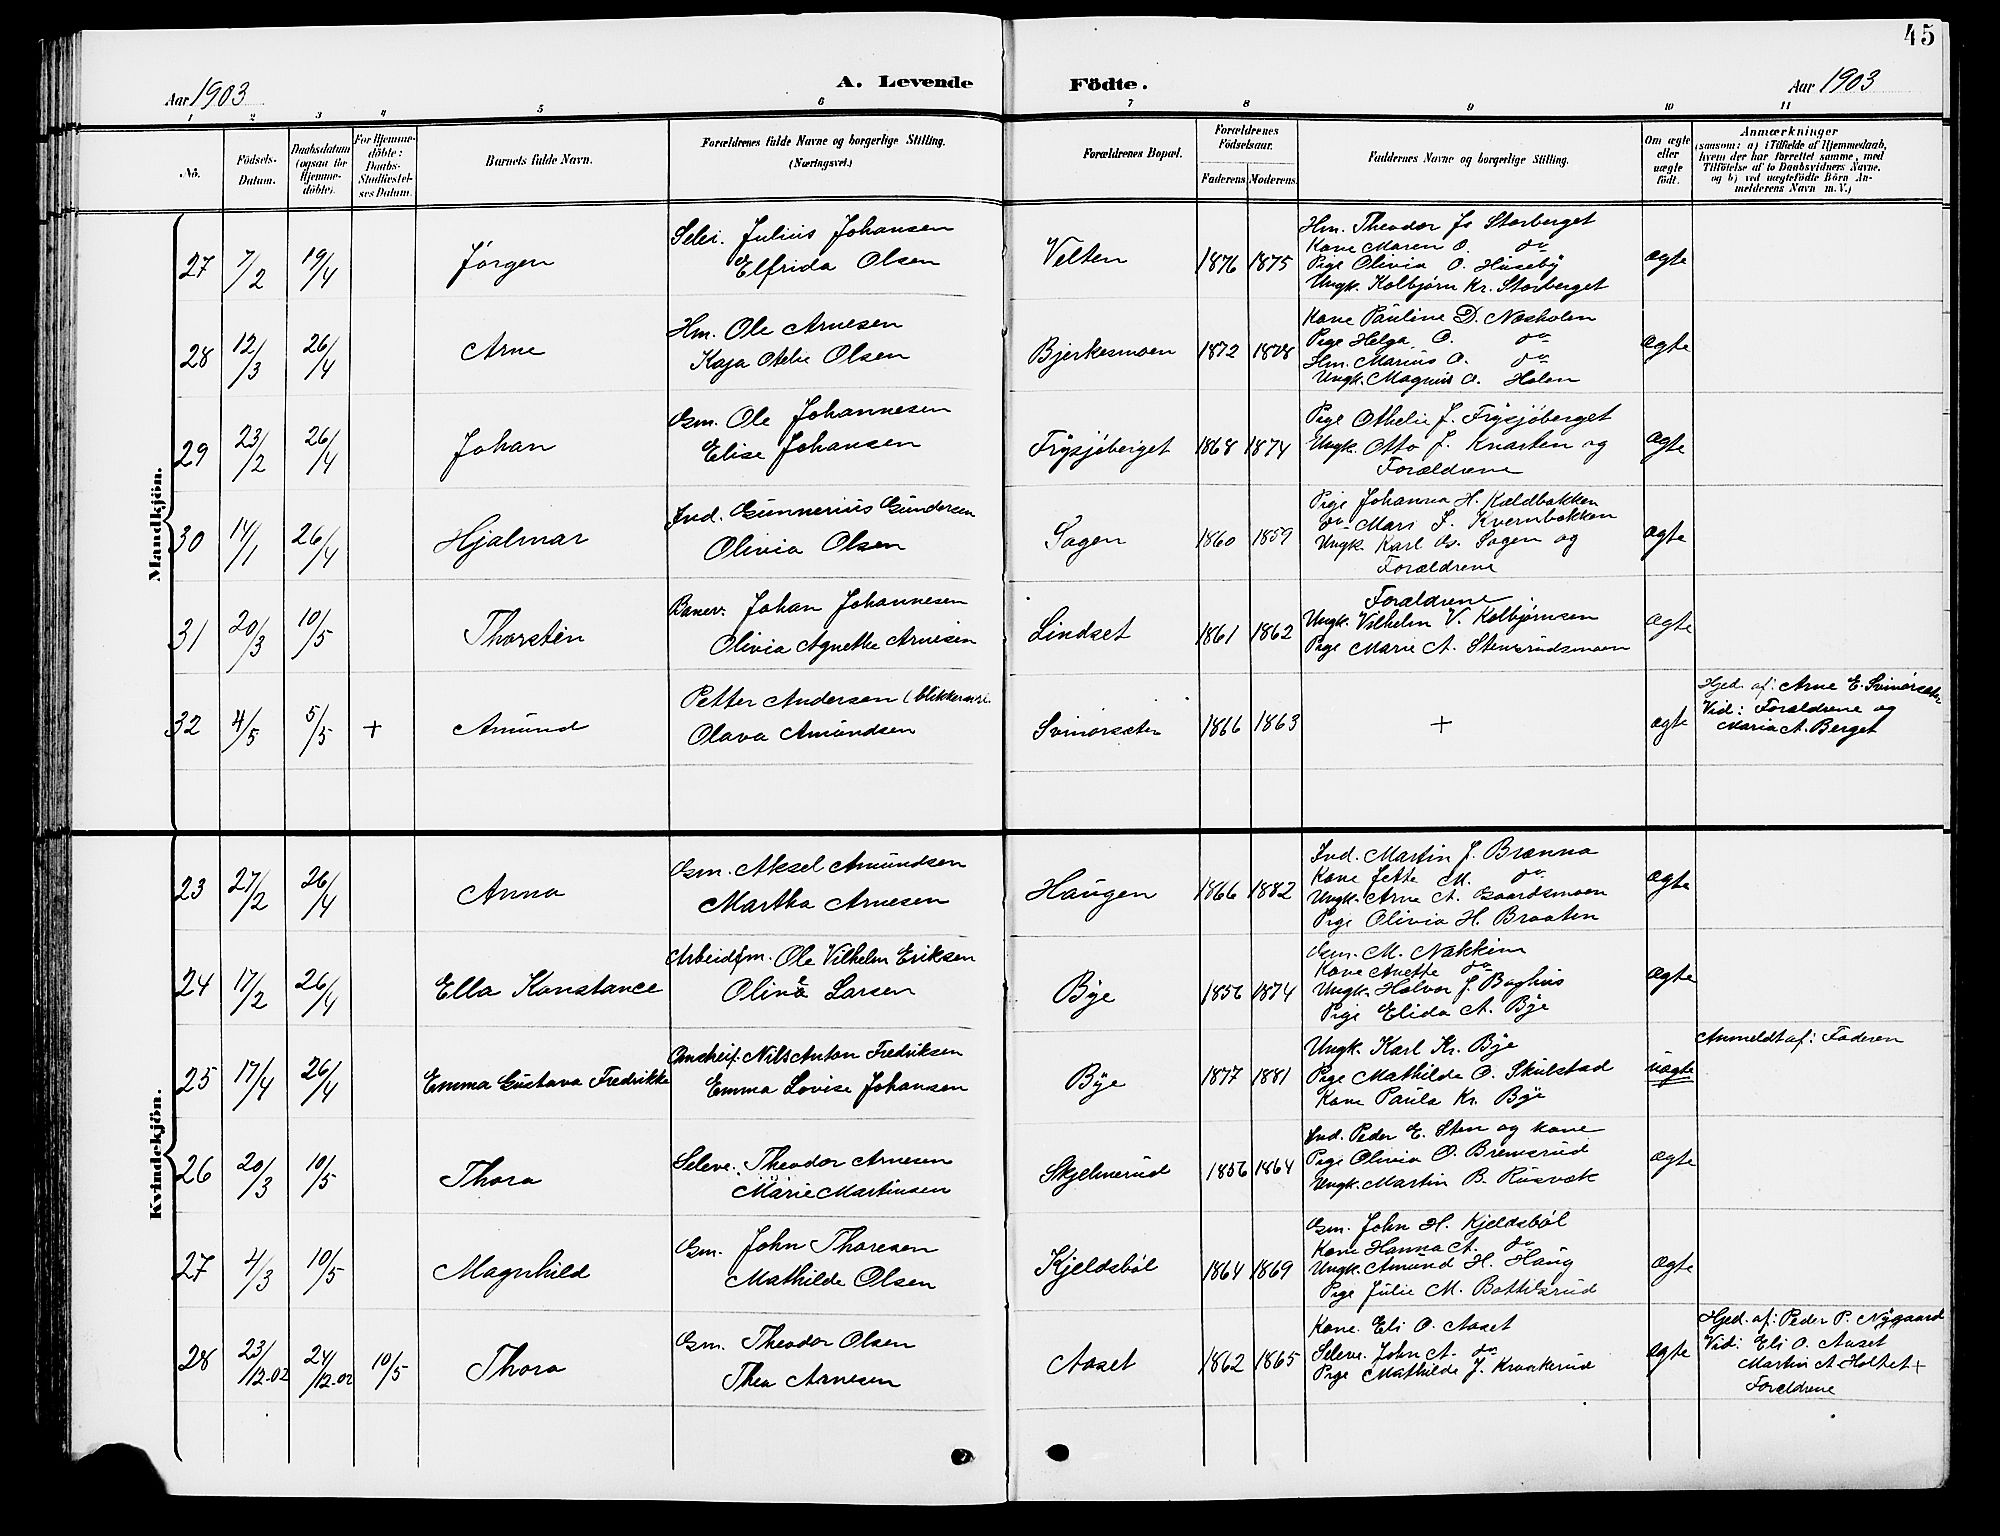 45
Aar 1903
A. Levende Födte.
Aar 1903
1 2 3 4 5 6 7 8 9 10 11
Nö.
Födsels-Datum.
Daabsdatum (ogsaa for Hjemme-döbte).
For Hjemme-döbte: Daabs-Stadfæstel-ses Datum.
Barnets fulde Navn.
Forældrenes fulde Navne og borgerlige Stilling. (Næringsvei.)
Forældrenes Bopæl.
Forældrenes Födselsaar.
Faderens Moderens.
Faddernes Navne og borgerlige Stilling.
Om ægte eller uægte födt.
Anmærkninger
(saasom: a) i Tilfælde af Hjemmedaab, hvem der har forrettet samme, med Tilföielse af to Daabsvidners Navne, og b) ved uægtefödte Börn An-melderens Navn m. V.)
Mandkjön.
27 7/2 19/4 Jörgen
Selei. Julius Johansen
Elfrida Olsen
Velten 1876 1875
Hm. Theodor Js Storberget
Kone Maren O. do
Pige Olivia O. Huseby
Ungk. Kolbjörn Kr. Storberget
ægte
28 12/3 26/4 Arne
Hm. Ole Arnesen
Kaja Otelie Olsen
Bjerkesmoen 1872 1878
Kone Pauline D. Næsholen
Pige Helga O. do
Hm. Marius O. do
Ungk. Magnus O. Holen
ægte
29 23/2 26/4 Johan
Gm. Ole Johannesen
Elise Johansen
Frysjöberget 1868 1874
Pige Othelie J. Frysjöberget
Ungk. Otto J. Knarten og
Forældrene
ægte
30 14/1 26/4 Hjalmar
Ind. Gunnerius Gundersen
Olivia Olsen
Sagen 1860 1859
Pige Johanna H. Kaldbakken
do Mari L. Kvernbakken
Ungk. Karl G. Sagen og
Forældrene
ægte
31 20/3 10/5 Thorstein
Banev. Johan Johannesen
Olivia Agnethe Arnesen
Lindset 1861 1862
Forældrene
Ungk. Vilhelm V. Kolbjörnsen
Pige Marie A. Stensrudsmoen
ægte
32 4/5 5/5 + Amund
Petter Andersen (blikkensm.
Olava Amundsen
Svinörsæter 1866 1863
+
ægte
Hjed. af: Arne E. Svinörsæter
Vid: Forældrene og
Maria A. Berget
Kvindekjön.
23 27/2 26/4 Anna
Gm. Aksel Amundsen
Martha Arnesen
Haugen 1866 1882
Ind. Martin J. Brænna
Kone Jette M. do
Ungk. Arne A. Gaardsmoen
Pige Olivia H. Braaten
ægte
24 17/2 26/4 Ella Konstance
Arbeidsm. Ole Vilhelm Eriksen
Oline Larsen
Bye 1856 1874
Gm. M. Nakkim
Kone Anette do
Ungk. Halvor J. Baghus
Pige Elida A. Bye
ægte
25 17/4 26/4 Emma Gustava Fredrikke
Nils Anton Fredriksen
Emma Lovise Johansen
Bye 1877 1881
Ungk. Karl Kr. Bye
Pige Mathilde O. Skulstad
Kone Paula Kr. Bye
uægte
Anmeldt af: Faderen
26 20/3 10/5 Thora
Seleve. Theodor Arnesen
Marie Martinsen
Skjelnerud 1856 1864
Ind. Peder E. Sten og kone
Pige Olivia O. Bremsrud
Ungk. Martin B. Rusvæk
ægte
27 4/3 10/5 Magnhild
Gm. John Thoresen
Mathilde Olsen
Kjeldsböl 1864 1869
Gm. John H. Kjeldsböl
Kone Hanna A. do
Ungk. Amund H. Haug
Pige Julie M. Bottilsrud
ægte
28 23/12.02 24/12.02 10/5 Thora
Gm. Theodor Olsen
Thea Arnesen
Aaset 1862 1865
Kone Eli O. Aaset
Seleve. John A. do
Pige Mathilde J. Kraakerud
ægte
Hjed. af: Peder P. Nygaard
Vid: Eli O. Aaset
Martin A. Holtet +
Forældrene